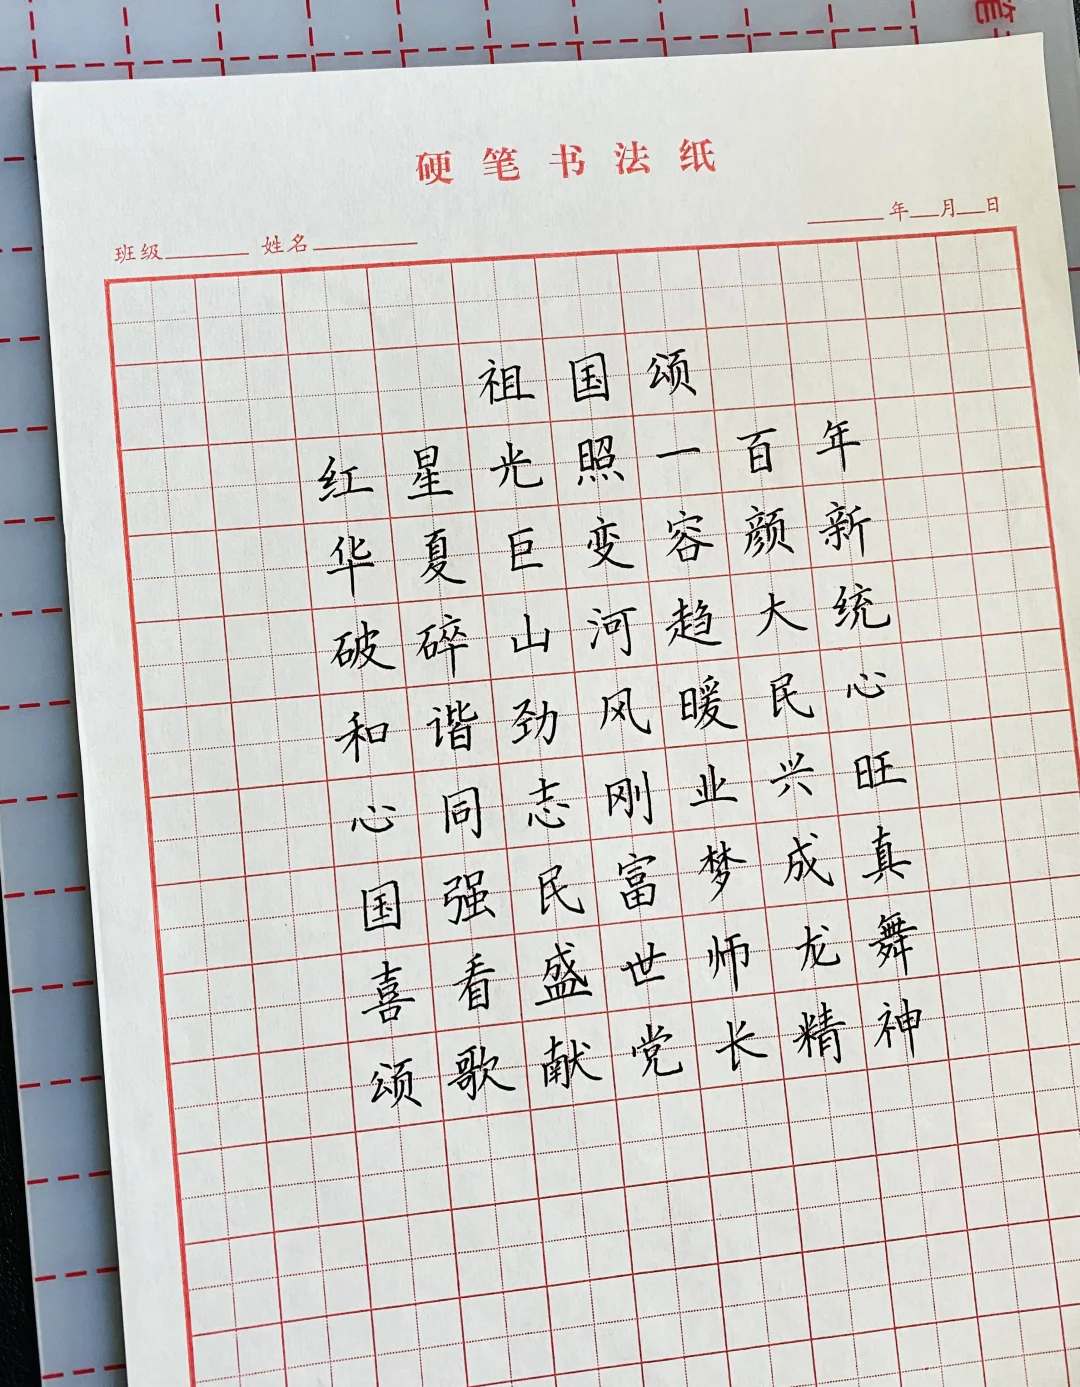 硬笔书法纸
班级 姓名 年 月 日
祖国颂
红星光照一百年
华夏巨变容颜新
破碎山河趋大统
和谐劲风暖民心
心同志刚业兴旺
国强民富梦成真
喜看盛世师龙舞
颂歌献党长精神
笔